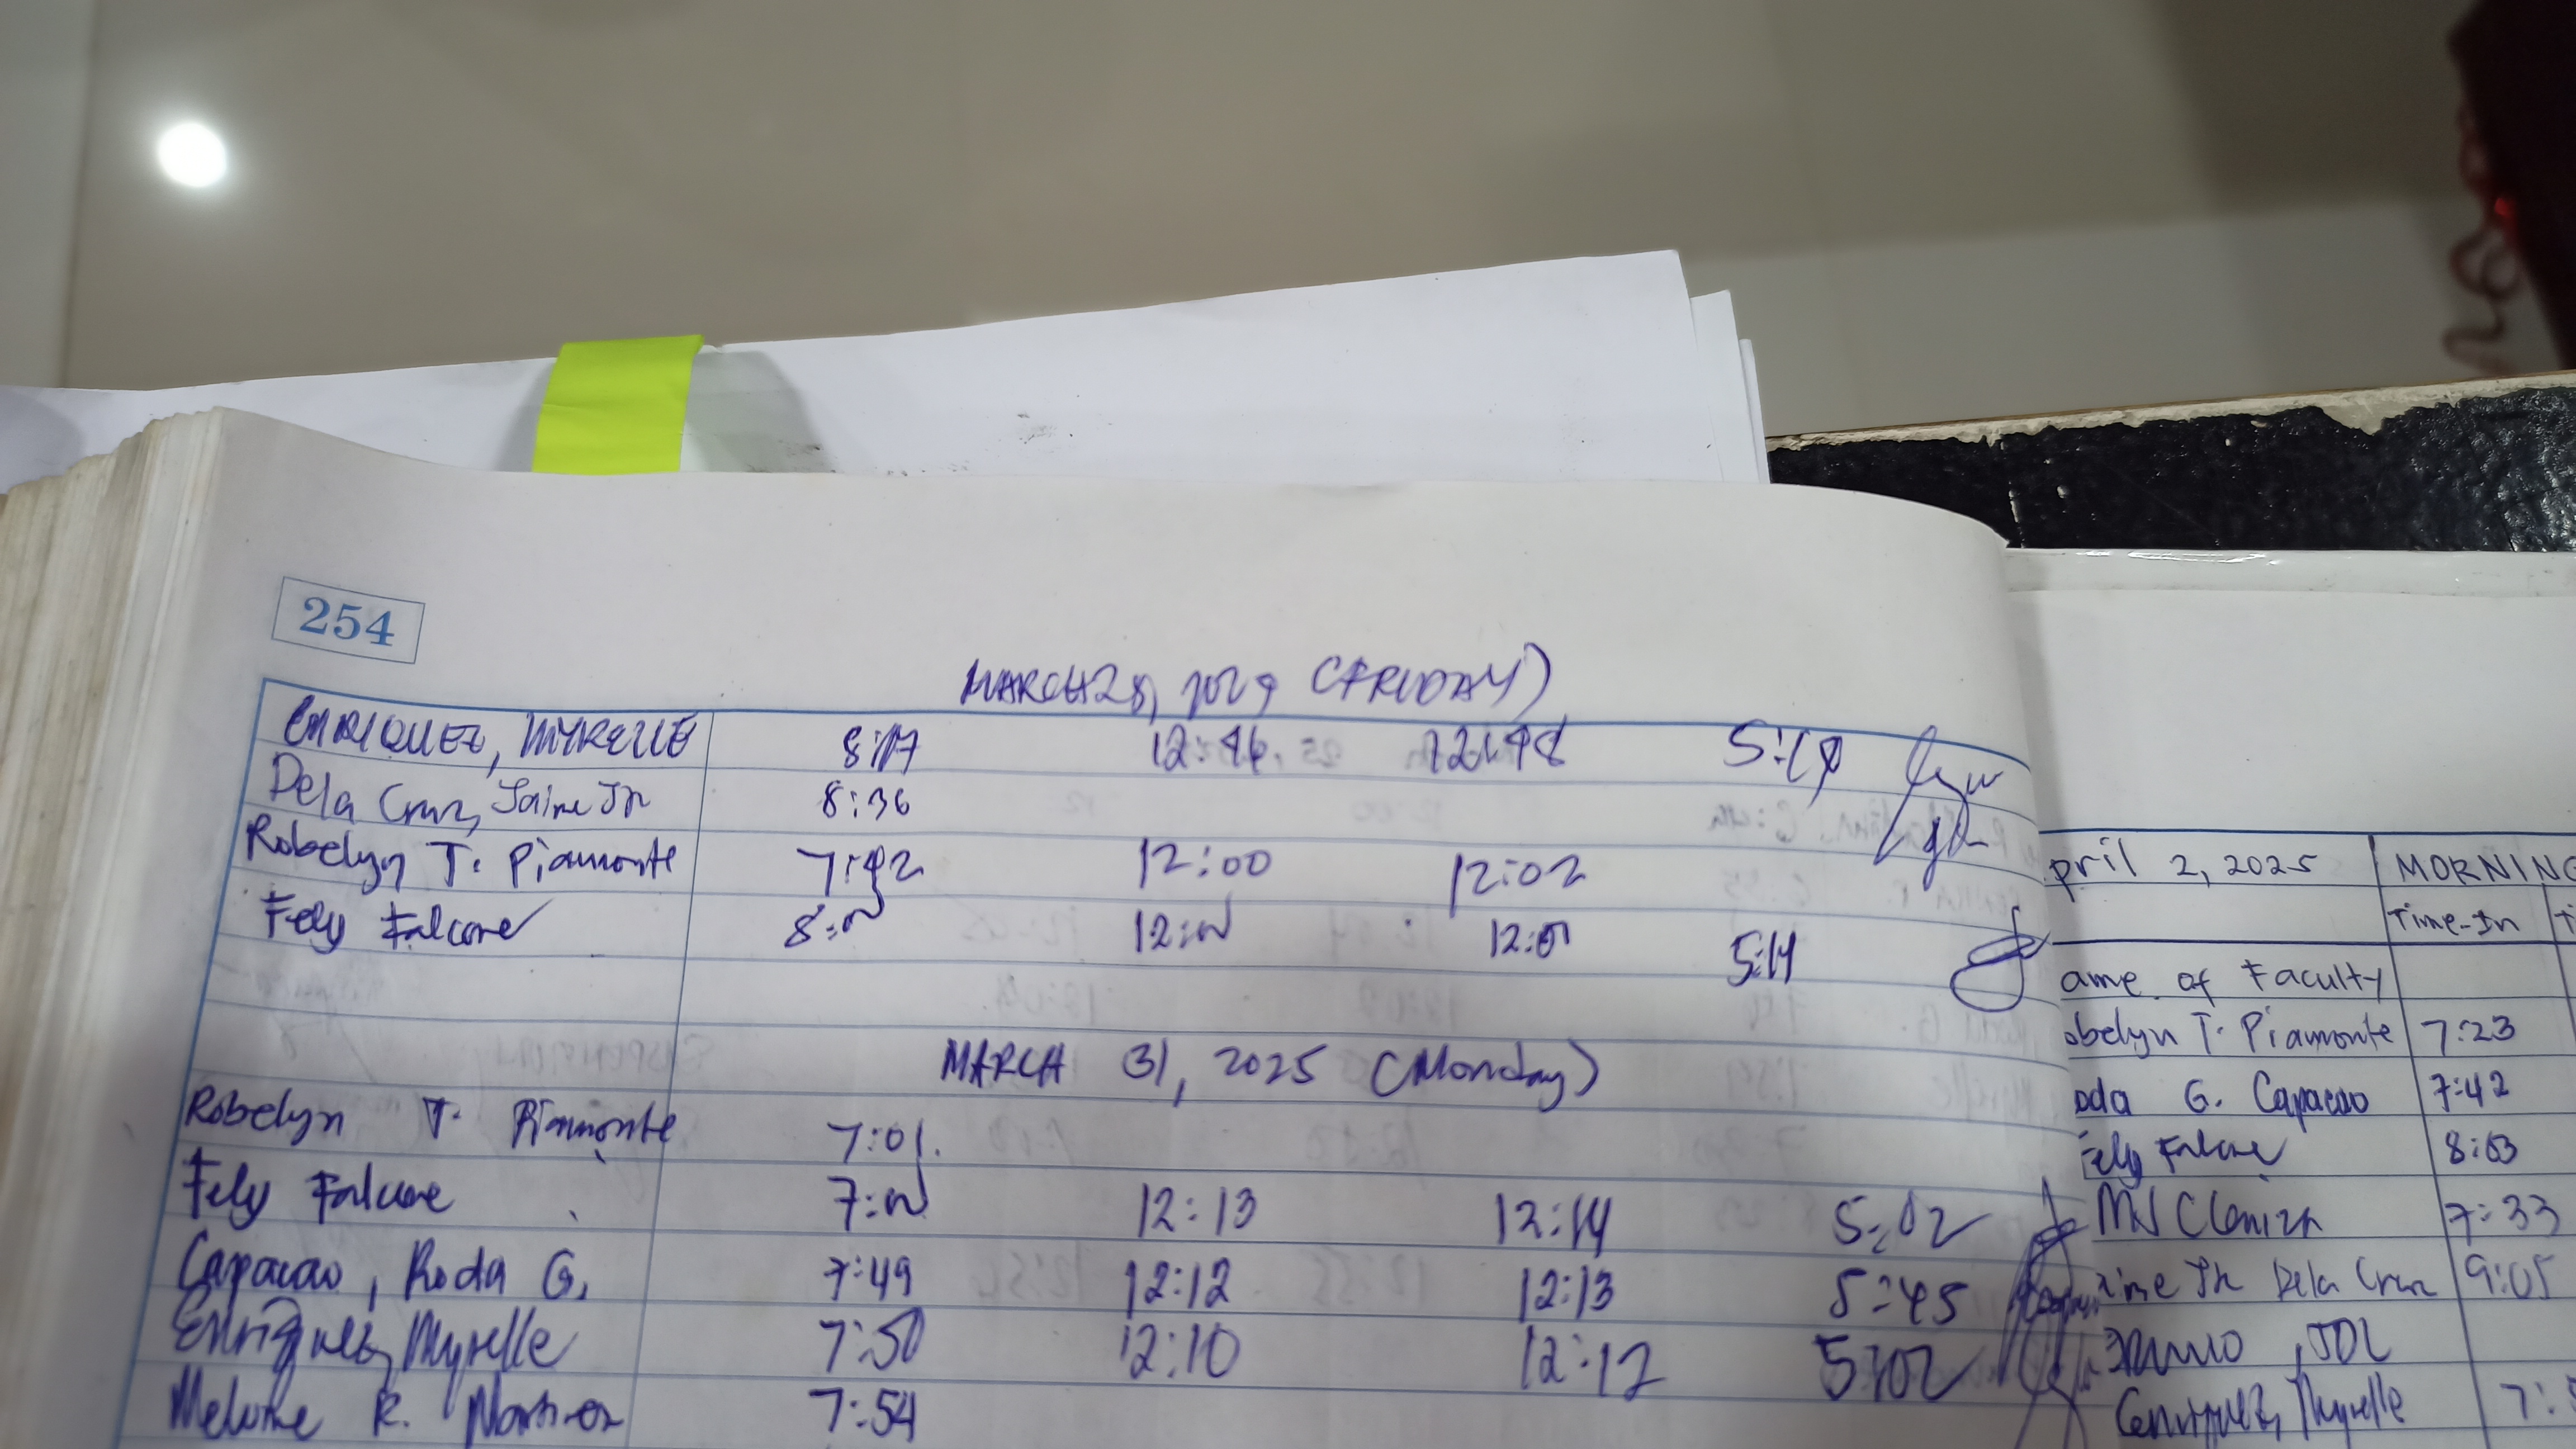 254
MARCH 28, 2025 (FRIDAY)
ENRIQUEZ, MYRELLE 8:17 12:46 12:48
Dela Cruz, Jaime Jr 8:36
Robelyn T. Piamonte 7:42 12:00 12:02
Fely Falcone 12:01 5:14
MARCH 31, 2025 (Monday)
Robelyn T. Piamonte 7:01
Fely Falcone 12:13 12:14 5:02
Capacao, Roda G. 7:49 12:12 12:13 5:45
Enriquez, Myrelle 7:50 12:10 12:12 5:02
R. 7:54
pril 2, 2025 MORNING
Time-In T
ame of Faculty
obelyn T. Piamonte 7:23
oda G. Capacao 7:42
Fely Falcone 8:03
7:33
ime Jr Dela Cruz 9:05
, JDL
Enriquez, Myrelle 7: